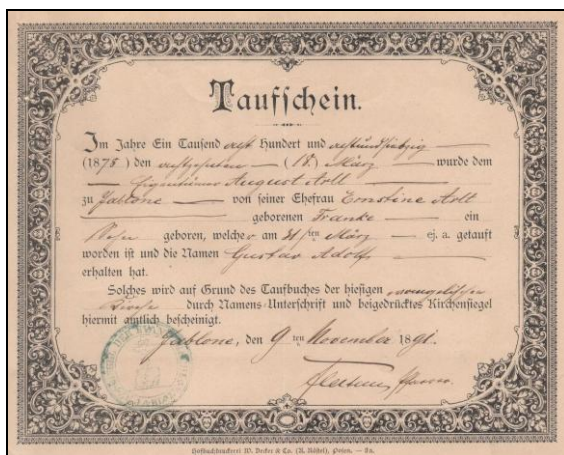 Taufschein.
Im Jahre Ein Tausend acht Hundert und achtundsiebzig
(1878) den achtzehnten (18.) März wurde dem
Eigenthümer August Arlt
zu Jablone von seiner Ehefrau Ernstine Arlt
geborenen Franke ein
Sohn geboren, welcher am 31ten März ej. a. getauft
worden ist und die Namen Gustav Adolf
erhalten hat.
Solches wird auf Grund des Taufbuches der hiesigen evangelischen
Kirche durch Namens-Unterschrift und beigedrücktes Kirchensiegel
hiermit amtlich bescheinigt.
Jablone, den 9ten November 1891.
Pfarrer.
Hofbuchdruckerei W. Decker & Co. (A. Röstel), Posen.